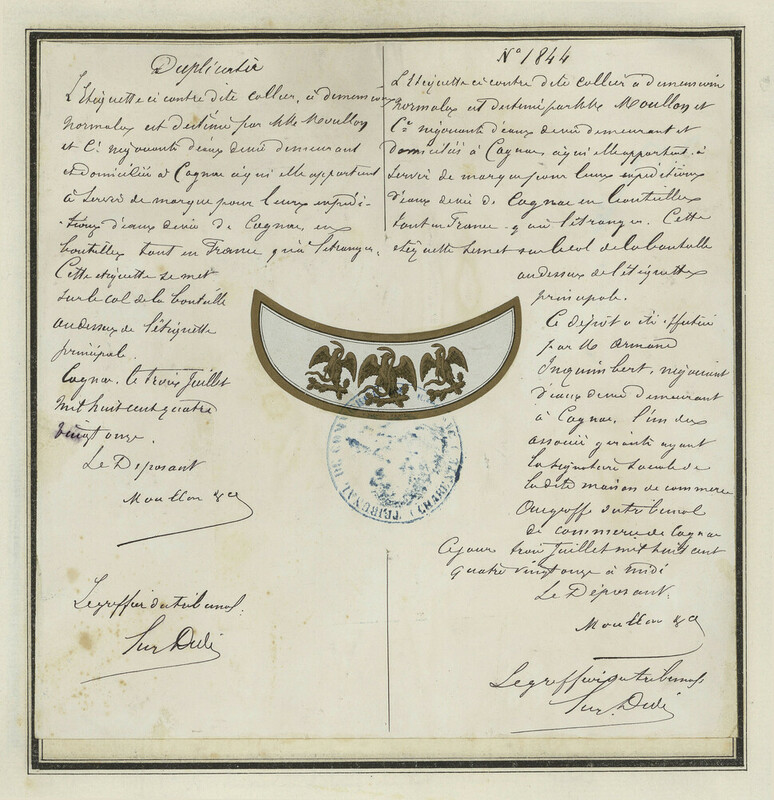 Duplicata
L'Etiquette ci contre dite collier, à dimensions
normales est destiné par MM Moullon
et Cie négociants d'eaux devie demeurant
et domiciliés à Cognac à qui elle appartient
à servir de marque pour leurs expédi-
-tions d'eaux devie de Cognac, en
bouteilles tant en France qu'à l'étranger.
Cette etiquette se met
sur le col de la bouteille
au dessus de l'étiquette
principale.
Cognac. le trois Juillet
mil huit cent quatre
vingt onze.
Le Déposant
Moullon & Cie
Le greffier du tribunal.
No 1844
L'Etiquette ci contre dite collier à dimensions
normales est destiné par MM Moullon et
Cie négociants d'eaux devie demeurant et
domiciliés à Cognac, à qui elle appartient. à
servir de marque pour leurs expéditions
d'eaux devie de Cognac en bouteilles
tant en France qu'à l'étranger. Cette
etiquette se met sur le col de la bouteille
au dessus de l'étiquette
principale.
Ce dépôt a été effectué
par M Armand
Inquimbert, négociant
d'eaux devie demeurant
à Cognac, l'un des
associés gérants ayant
la signature sociale de
la dite maison de commerce
Au greffe du tribunal
de commerce de Cognac
Ce jour trois Juillet mil huit cent
quatre vingt onze à midi
Le Déposant.
Moullon & Cie
Le greffier du tribunal
TRIBUNAL DE COMMERCE
(CHARENTE)